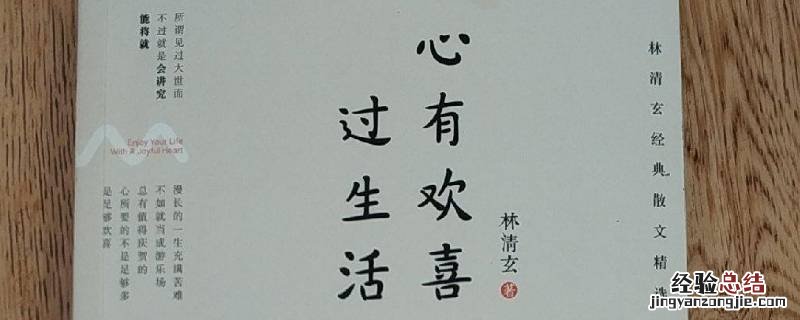 林清玄经典散文精选
心有欢喜
过生活
林清玄 著
所谓见过大世面
不过就是会讲究
能将就
Enjoy Your Life
With A Joyful Heart
漫长的一生充满苦难
不如就当成游乐场
总有值得庆贺的
心所要的不是足够多
是足够欢喜
经验总结
jingyanzongjie.com